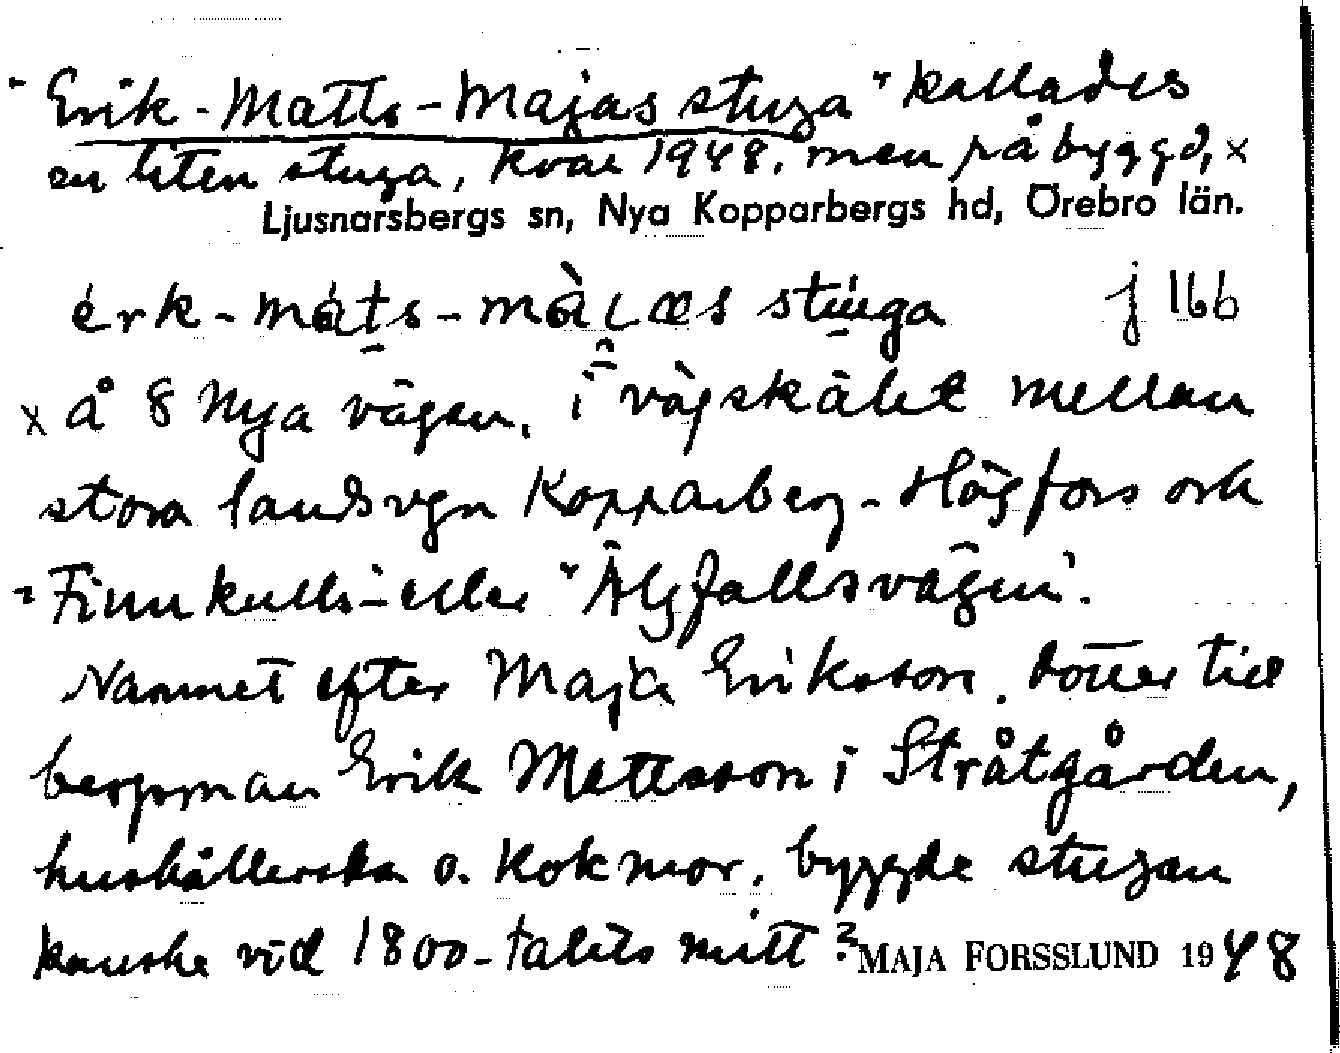 "Erik-Matts-Majas stuga" kallades
en liten stuga, kvar 1948, men påbyggd, x
Ljusnarsbergs sn, Nya Kopparbergs hd, Örebro län.
érk-máts-màjæs stúga j 16b
x å 8 Nya vägen, i vägskälet mellan
stora landsvgn Kopparberg-Högfors och
"Finnkulls- eller "Älgfallsvägen".
Namnet efter Maja Eriksson, dotter till
bergsman Erik Mattsson i Stråtgården,
hushållerska o. kokmor, byggde stugan
kanske vid 1800-talets mitt? MAJA FORSSLUND 1948